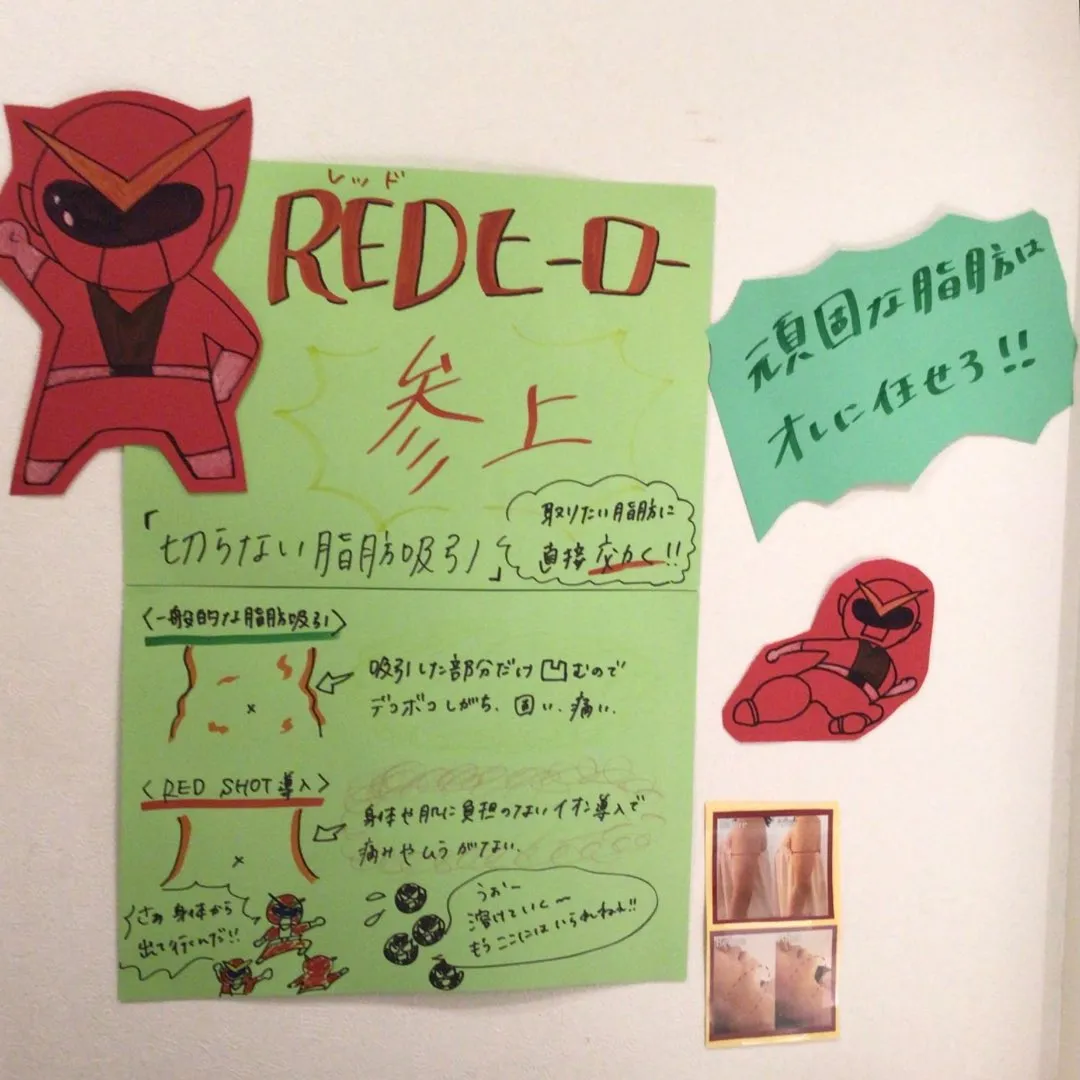 レッド
REDヒーロー
参上
「切らない脂肪吸引」
取りたい脂肪に
直接効く!!
頑固な脂肪は
オレに任せろ!!
〈一般的な脂肪吸引〉
吸引した部分だけ凹むので
デコボコしがち、固い、痛い、
〈RED SHOT導入〉
身体や肌に負担のないイオン導入で
痛みやムラがない、
さぁ身体から
出て行くんだ!!
うぉー
溶けていく〜
もうここにはいられねぇ!!